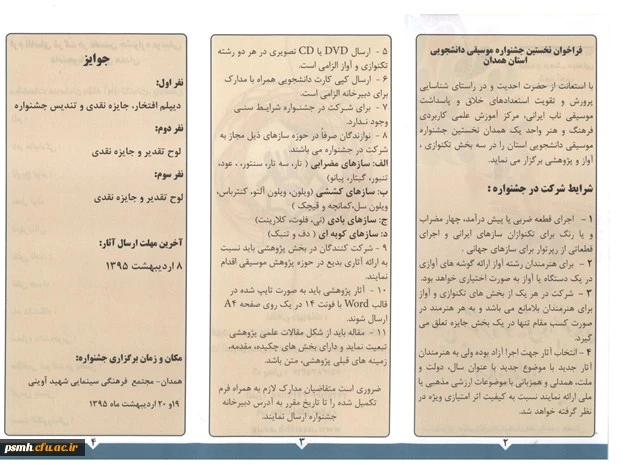 فراخوان نخستین جشنواره موسیقی دانشجویی
استان همدان
با استعانت از حضرت احدیت و در راستای شناسایی
پرورش و تقویت استعدادهای خلاق و پاسداشت
موسیقی ناب ایرانی، مرکز آموزش علمی کاربردی
فرهنگ و هنر واحد یک همدان نخستین جشنواره
موسیقی دانشجویی استان را در سه بخش تکنوازی ،
آواز و پژوهشی برگزار می نماید.
شرایط شرکت در جشنواره :
۱ - اجرای قطعه ضربی یا پیش درآمد، چهار مضراب
و یا رنگ برای تکنوازان سازهای ایرانی و اجرای
قطعاتی از رپرتوار برای سازهای جهانی .
۲ - برای هنرمندان رشته آواز ارائه گوشه های آوازی
در یک دستگاه یا آواز به صورت اختیاری خواهد بود.
۳ - شرکت در هر یک از بخش های تکنوازی و آواز
برای هنرمندان بلامانع می باشد و به هر هنرمند در
صورت کسب مقام تنها در یک بخش جایزه تعلق می
گیرد.
۴ -انتخاب آثار جهت اجرا آزاد بوده ولی به هنرمندان
آثار جدید با موضوع جدید با عنوان سال، دولت و
ملت، همدلی و همزبانی با موضوعات ارزشی مذهبی یا
ملی ارائه نمایند نسبت به کیفیت اثر امتیازی ویژه در
نظر گرفته خواهد شد.
۲
۵ - ارسال DVD یا CD تصویری در هر دو رشته
تکنوازی و آواز الزامی است.
۶ - ارسال کپی کارت دانشجویی همراه با مدارک
برای دبیرخانه الزامی است.
۷ - برای شرکت در جشنواره شرایط سنی
وجود ندارد.
۸ - نوازندگان صرفاً در حوزه سازهای ذیل مجاز به
شرکت در جشنواره می باشند.
الف: سازهای مضرابی ( تار، سه تار، سنتور، ، عود،
تنبور، گیتار، پیانو)
ب: سازهای کششی (ویلون، ویلون آلتو، کنترباس،
ویلون سل،کمانچه و قیچک )
ج: سازهای بادی (نی، فلوت، کلارینت)
د: سازهای کوبه ای ( دف و تنبک)
۹ - شرکت کنندگان در بخش پژوهشی باید نسبت
به ارائه آثاری بدیع در حوزه پژوهش موسیقی اقدام
نمایند.
۱۰ - آثار پژوهشی باید به صورت تایپ شده در
قالب Word با فونت ۱۴ در یک روی صفحه A۴
ارسال شوند.
۱۱ - مقاله باید از شکل مقالات علمی پژوهشی
تبعیت نماید و دارای بخش های چکیده، مقدمه،
زمینه های قبلی پژوهشی، متن باشد.
ضروری است متقاضیان مدارک لازم به همراه فرم
تکمیل شده را تا تاریخ مقرر به آدرس دبیرخانه
جشنواره ارسال نمایند.
۳
جوایز
نفر اول:
دیپلم افتخار، جایزه نقدی و تندیس جشنواره
نفر دوم:
لوح تقدیر و جایزه نقدی
نفر سوم:
لوح تقدیر و جایزه نقدی
آخرین مهلت ارسال آثار:
۸ اردیبهشت ۱۳۹۵
مکان و زمان برگزاری جشنواره:
همدان- مجتمع فرهنگی سینمایی شهید آوینی
۱۹و ۲۰ اردیبهشت ماه ۱۳۹۵
۴
psmh.cfu.ac.ir